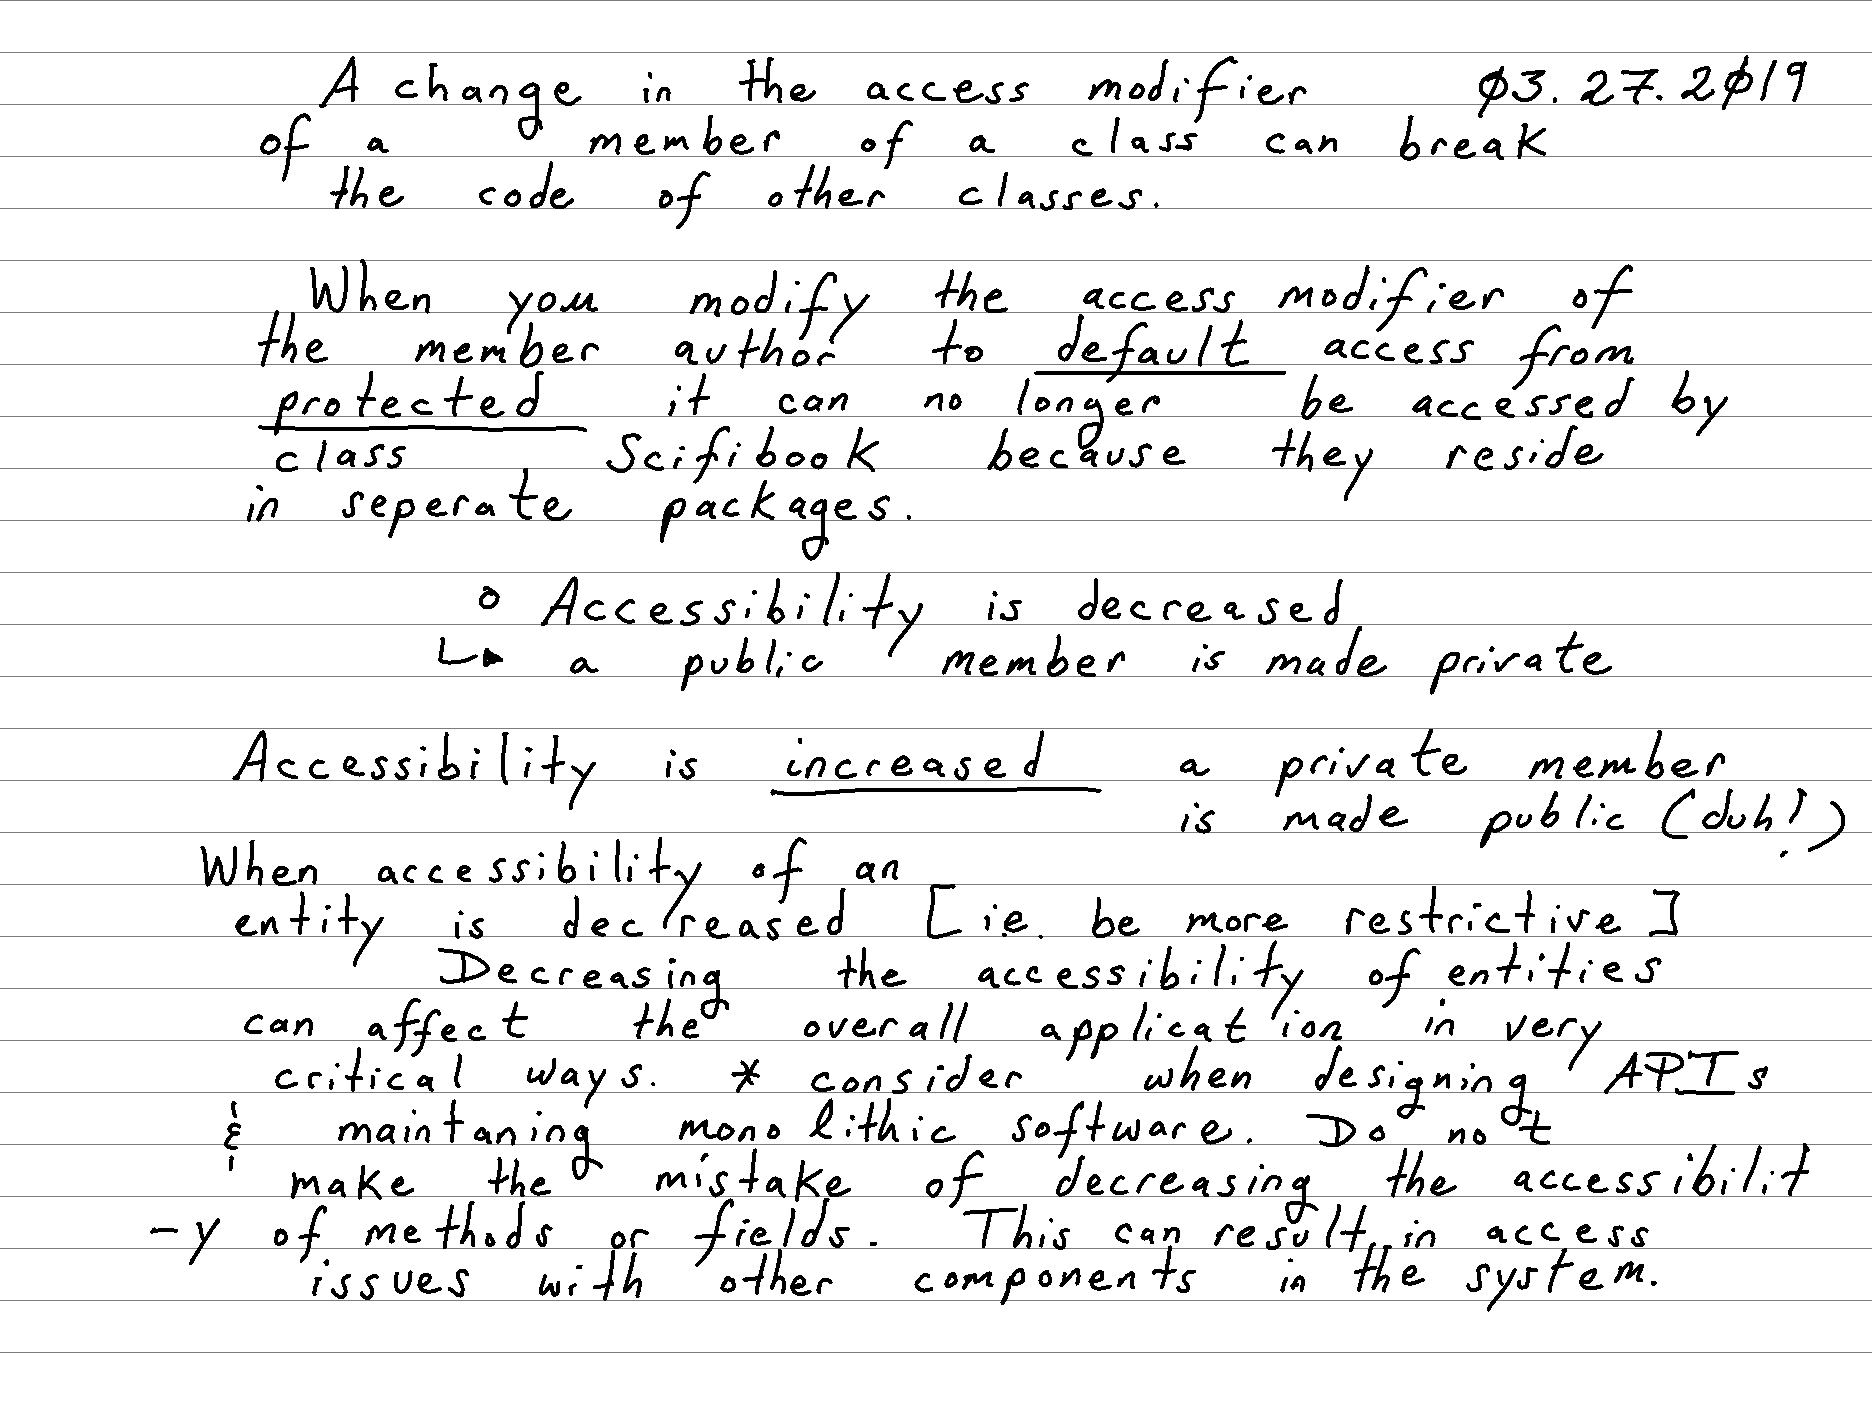 A change in the access modifier 03.27.2019
of a member of a class can break
the code of other classes.
When you modify the access modifier of
the member author to default access from
protected it can no longer be accessed by
class Scifibook because they reside
in seperate packages.
o Accessibility is decreased
↳ a public member is made private
Accessibility is increased a private member
is made public (duh!)
When accessibility of an
entity is decreased [ie. be more restrictive]
Decreasing the accessibility of entities
can affect the overall application in very
critical ways. * consider when designing APIs
& maintaning monolithic software. Do not
make the mistake of decreasing the accessibilit
-y of methods or fields. This can result in access
issues with other components in the system.